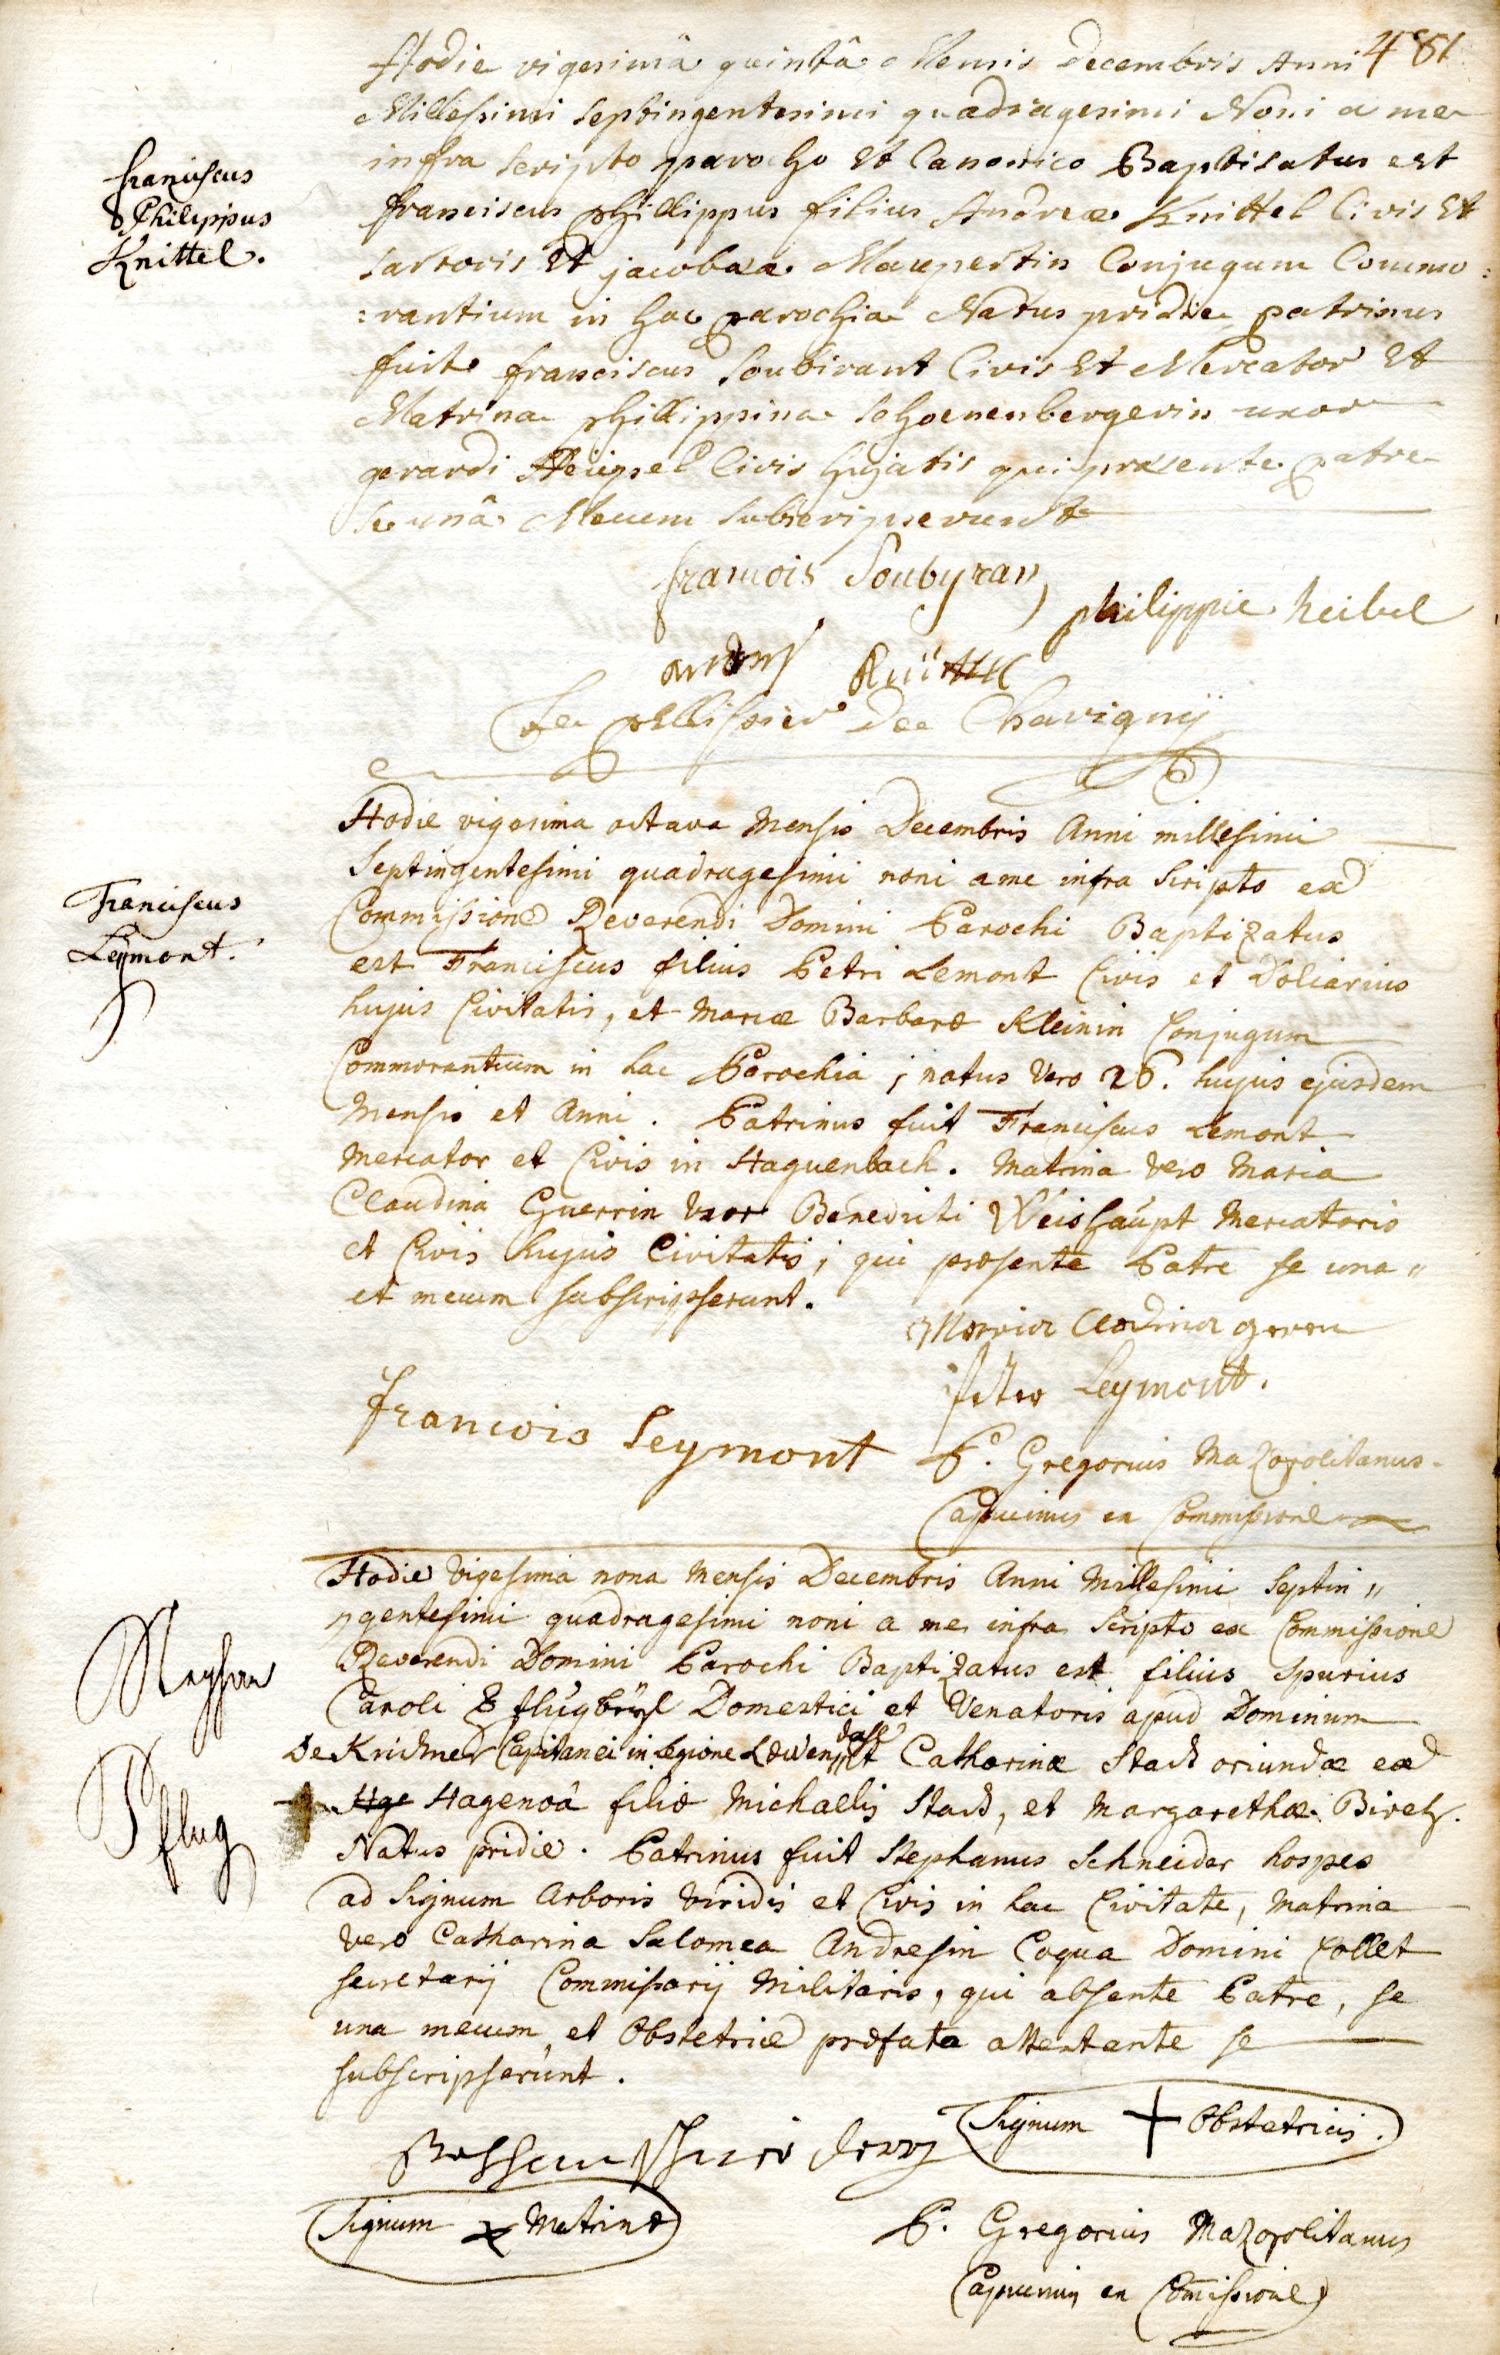 481
Hodie vigesimâ quintâ Mensis Decembris Anni
Millesimi septingentesimi quadragesimi Noni a me
infra scripto parocho et Canonico Baptisatus est
franciscus phillippus filius Andreæ Knittel Civis et
sartoris et jacobæa Maupertin Conjugum Commo:
:rantium in hac parochia Natus pridie patrinus
fuit franciscus Soubirant Civis et Mercator et
Matrina phillippina schoenenbergerin uxor
gerardi Civis hujatis qui præsente patre
se unâ Mecum subscripserunt
franciscus
Philippus
Knittel.
francois Soubyran
philippie heibel
Le pellissier De Chavignÿ
Hodie vigesima octava Mensis Decembris Anni millesimi
Septingentesimi quadragesimi noni a me infra scripto ex
Commissione Reverendi Domini Parochi Baptizatus
est Franciscus filius Petri Lemont Civis et Doliarius
hujus Civitatis, et Mariæ Barbaræ Kleinin Conjugum
Commorantium in hac Parochia; natus vero 26. hujus ejusdem
Mensis et Anni. Patrinus fuit Franciscus Lemont
Mercator et Civis in Haguenbach. Matrina vero Maria
Claudina Guerrin Uxor Benedicti Weishaupt Mercatoris
et Civis hujus Civitatis; qui præsente Patre se una"
et mecum subscripserunt.
Franciscus
Leymont.
Maria Clodina
Peter Leymont.
francois Leymont
P. Gregorius Mazopolitanus
Capucinus ex Commissione
Hodie Vigesima nona Mensis Decembris Anni Millesimi Septin"
gentesimi quadragesimi noni a me infra scripto ex Commissione
Reverendi Domini Parochi Baptizatus est filius spurius
Caroli Domestici et Venatoris apud Dominum
De Capitanei in Legione et Catharinæ Stack oriundæ ex
Hage Hagenoâ filiæ Michaelis Stack, et Margarethæ
Natus pridie. Patrinus fuit Stephanus Schneider hospes
ad Signum Arboris viridis et Civis in hac Civitate, Matrina
vero Catharina Salomea Andresin Coqua Domini Collet
secretarij Commissarij Militaris, qui absente Patre, se
una mecum et Obstetrice præfata attestante se
subscripserunt.
Pflug
Signum + Obstetricis.
Signum x Matrinæ
P. Gregorius Mazopolitanus
Capucinus ex Comissione